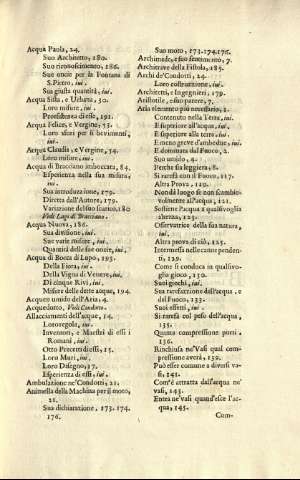 Acqua Paola, 24.
Suo Architetto, 180.
Suo riconoscimento, 186.
Sue oncie per la Fontana di
S. Pietro, ivi.
Sua giusta quantità, ivi.
Acqua Sista, e Urbana, 30.
Loro misure, ivi.
Proffistenza di essa, 191.
Acqua Felice, e Vergine, 75.
Loro usi per li bevimenti,
ivi.
Acqua Claudia, e Vergine, 54.
Loro misure, ivi.
Acqua di Bracciano imboccata, 84.
Esperienza nella sua misura,
ivi.
Sua introduzione, 179.
Diretta dall'Autore, 179.
Variazione del suo sistema, 180
Vedi Lago di Bracciano.
Acqua Nuova, 186.
Sua divisione, ivi.
Sue varie misure, ivi.
Quantità delle sue oncie, ivi.
Acqua di Bocca di Lupo, 195.
Della Fiora, ivi.
Della Vigna di Venere, ivi.
Di cinque Rivi, ivi.
Misure delle dette acque, 194.
Acqueo umido dell'Aria, 4.
Acquedotto, Vedi Condotto.
Allacciamenti dell'acque, 14.
Loro regola, ivi.
Inventori, e Maestri di essi i
Romani, ivi.
Otto Precetti di essi, 15.
Loro Muri, ivi.
Loro Disegno, 17.
Esperienza di essi, ivi.
Ambulazione ne'Condotti, 21.
Animella della Machina per il moto,
21.
Sua dichiarazione, 173. 174.
176.
Suo moto, 173. 174. 176.
Archimede, e suo sentimento, 7.
Architrave della Fistola, 185.
Archi de'Condotti, 24.
Loro costruzione, ivi.
Architetti, e Ingegneri, 179.
Aristotile, e suo parere, 7.
Aria elemento più necessario, 2.
Contenuto nella Terra, ivi.
E superiore all'acqua, ivi.
E superiore alla terra, ivi.
E meno greve d'ambedue, ivi.
E dominata dal Fuoco, 2.
Suo umido, 4.
Perche sia leggiera, 8.
Si rarefà con il Fuoco, 117.
Altra Prova, 119.
Non dà luogo se non scambievolmente
all'acqua, 121.
Sostiene l'acqua a qualsivoglia
altezza, 123.
Osservatrice della sua natura,
ivi.
Altra prova di ciò, 125.
Intermessa nelle canne pendenti,
129.
Come si conduca in qualsivoglia
gioco, 130.
Suoi giochi, ivi.
Sua rarefazzione dall'acqua, e
del Fuoco, 133.
Suoi effetti, ivi.
Si rarefà col peso dell'acqua,
135.
Quanta compressione patisca,
136.
Rinchiusa ne'Vasi qual compressione
averà, 139.
Può esser comune a diversi vasi,
141.
Com'è attratta dall'acqua ne'
vasi, 143.
Entra ne' vasi quand'esce l'acqua,
145.
Com-